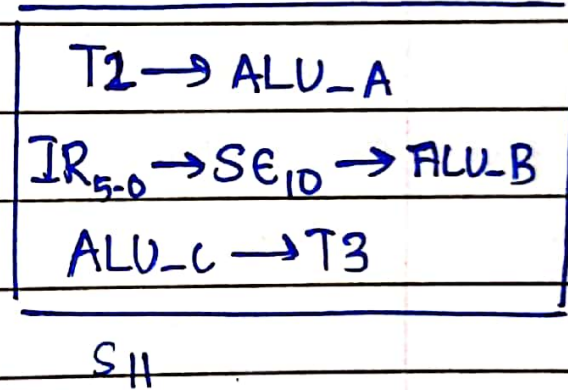 T2 → ALU_A
IR5-0 → SE10 → ALU_B
ALU_C → T3
S11